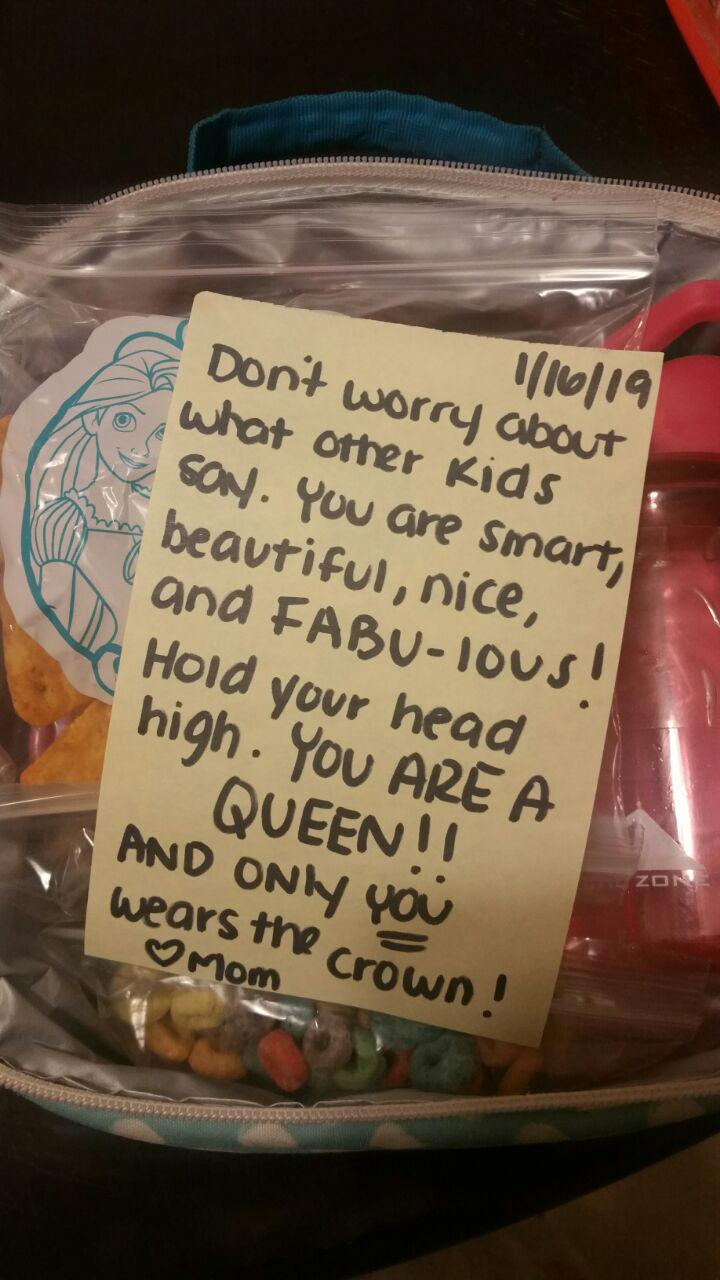 1/16/19
Don't worry about
what other kids
say. You are smart,
beautiful, nice,
and FABU-lous!
Hold your head
high. YOU ARE A
QUEEN!!
AND ONLY YOU
wears the crown!
♡Mom
ZONE